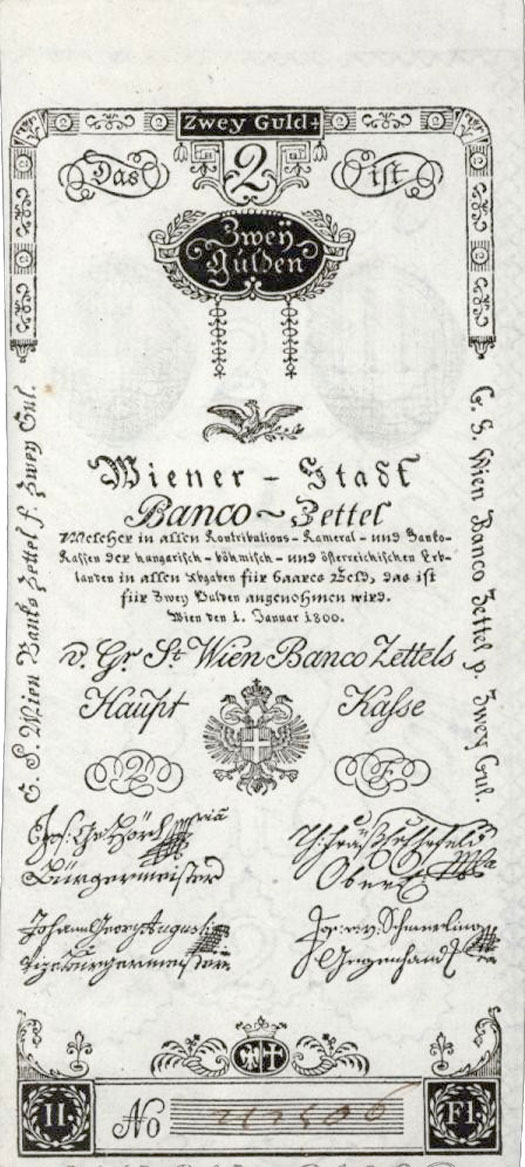 Zwey Guld
Das 2 ist
Zwey
Gulden
Wiener - Stadt
Banco ~ Zettel
Welcher in allen Kontributions - Kameral - und Banko-
Kassen der hungarisch - böhmisch - und österreichischen Erb-
landen in allen Abgaben für baares Geld, das ist
für Zwey Gulden angenohmen wird.
Wien den 1. Januar 1800.
v. Gr. St. Wien Banco Zettels
Haupt Kasse
2 F
G. S. Wien Banko Zettel f. Zwey Gul.
G. S. Wien Banco Zettel p. Zwey Gul.
Bürgermeister
Johann Georg Augusti
Vizebürgermeister
Jos: v. v: Schmerling
Gegenhand
II. No Fl.